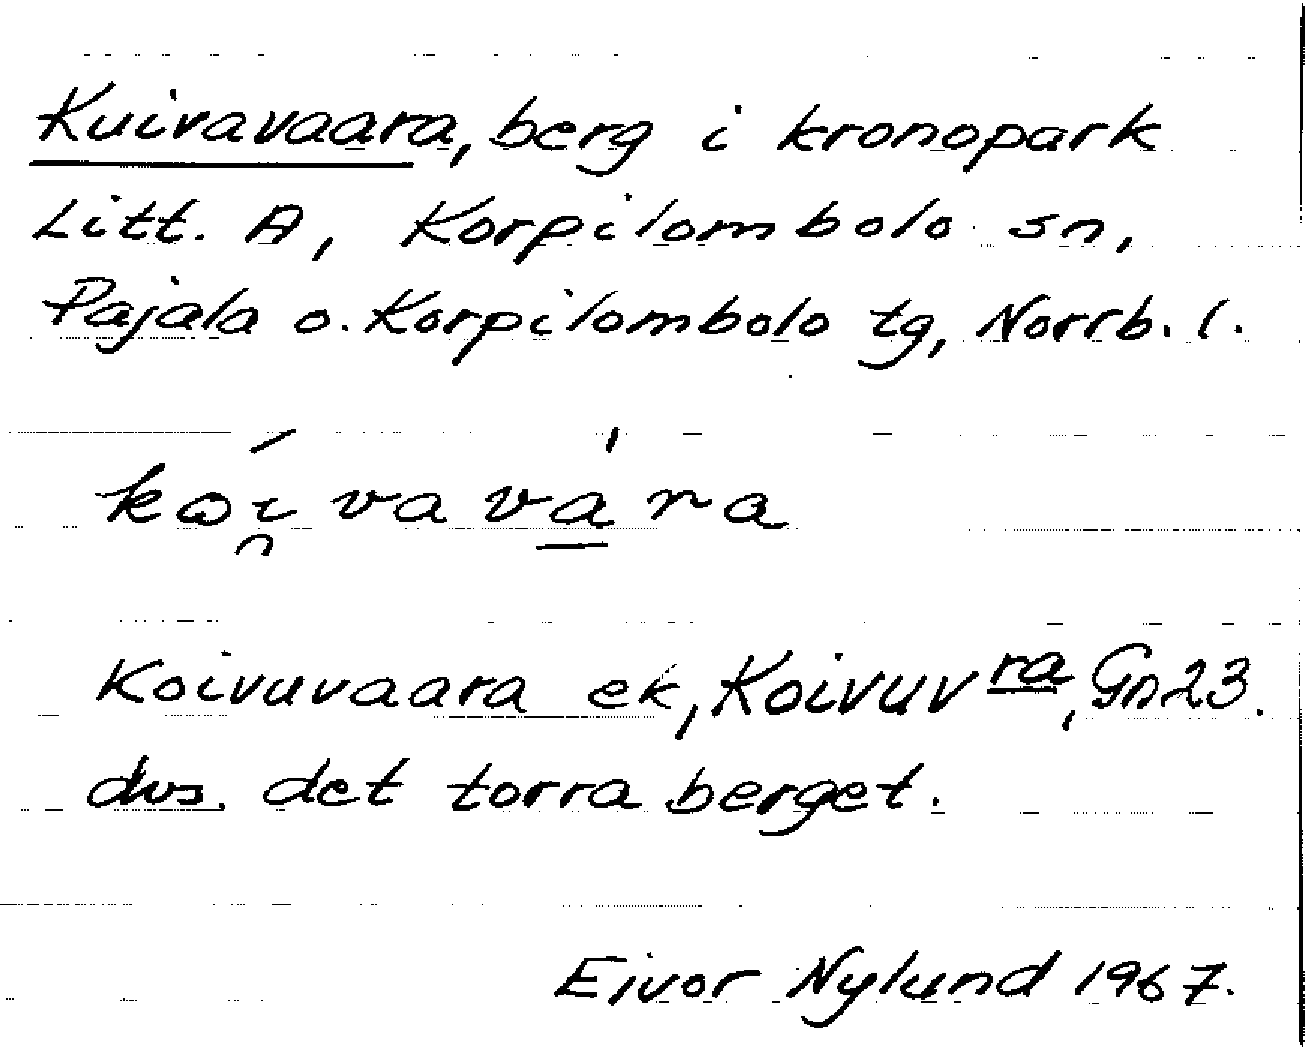 Kuivavaara, berg i kronopark
Litt. A, Korpilombolo sn,
Pajala o. Korpilombolo tg, Norrb. l.
kωí̯vavà̱ra
Koivuvaara ek, Koivuvra, Gn23.
dvs. det torra berget.
Eivor Nylund 1967.